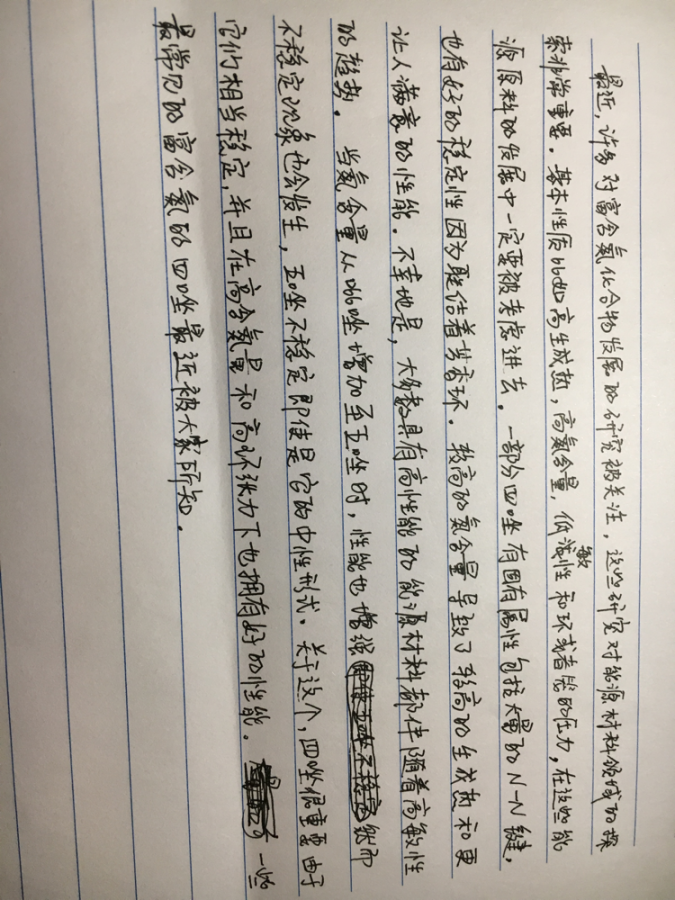 最近，许多对富含氮化合物发展的研究被关注，这些研究对能源材料领域的探
索非常重要。基本性质比如高生成热，高氮含量，低敏性和环或者笼的压力，在这些能
源原料的发展中一定要被考虑进去。一部分四唑有固有属性包括大量的N-N键，
也有好的稳定性因为联结着芳香环。较高的氮含量导致了较高的生成热和更
让人满意的性能。不幸地是，大多数具有高性能的能源材料都伴随着高敏性
的趋势。当氮含量从咪唑增加至五唑时，性能也增强然而
不稳定现象也会发生，五唑不稳定即使是它的中性形式。关于这个，四唑很重要由于
它们相当稳定，并且在高含氮量和高环张力下也拥有好的性能。一些
最常见的富含氮的四唑最近被大家所知。